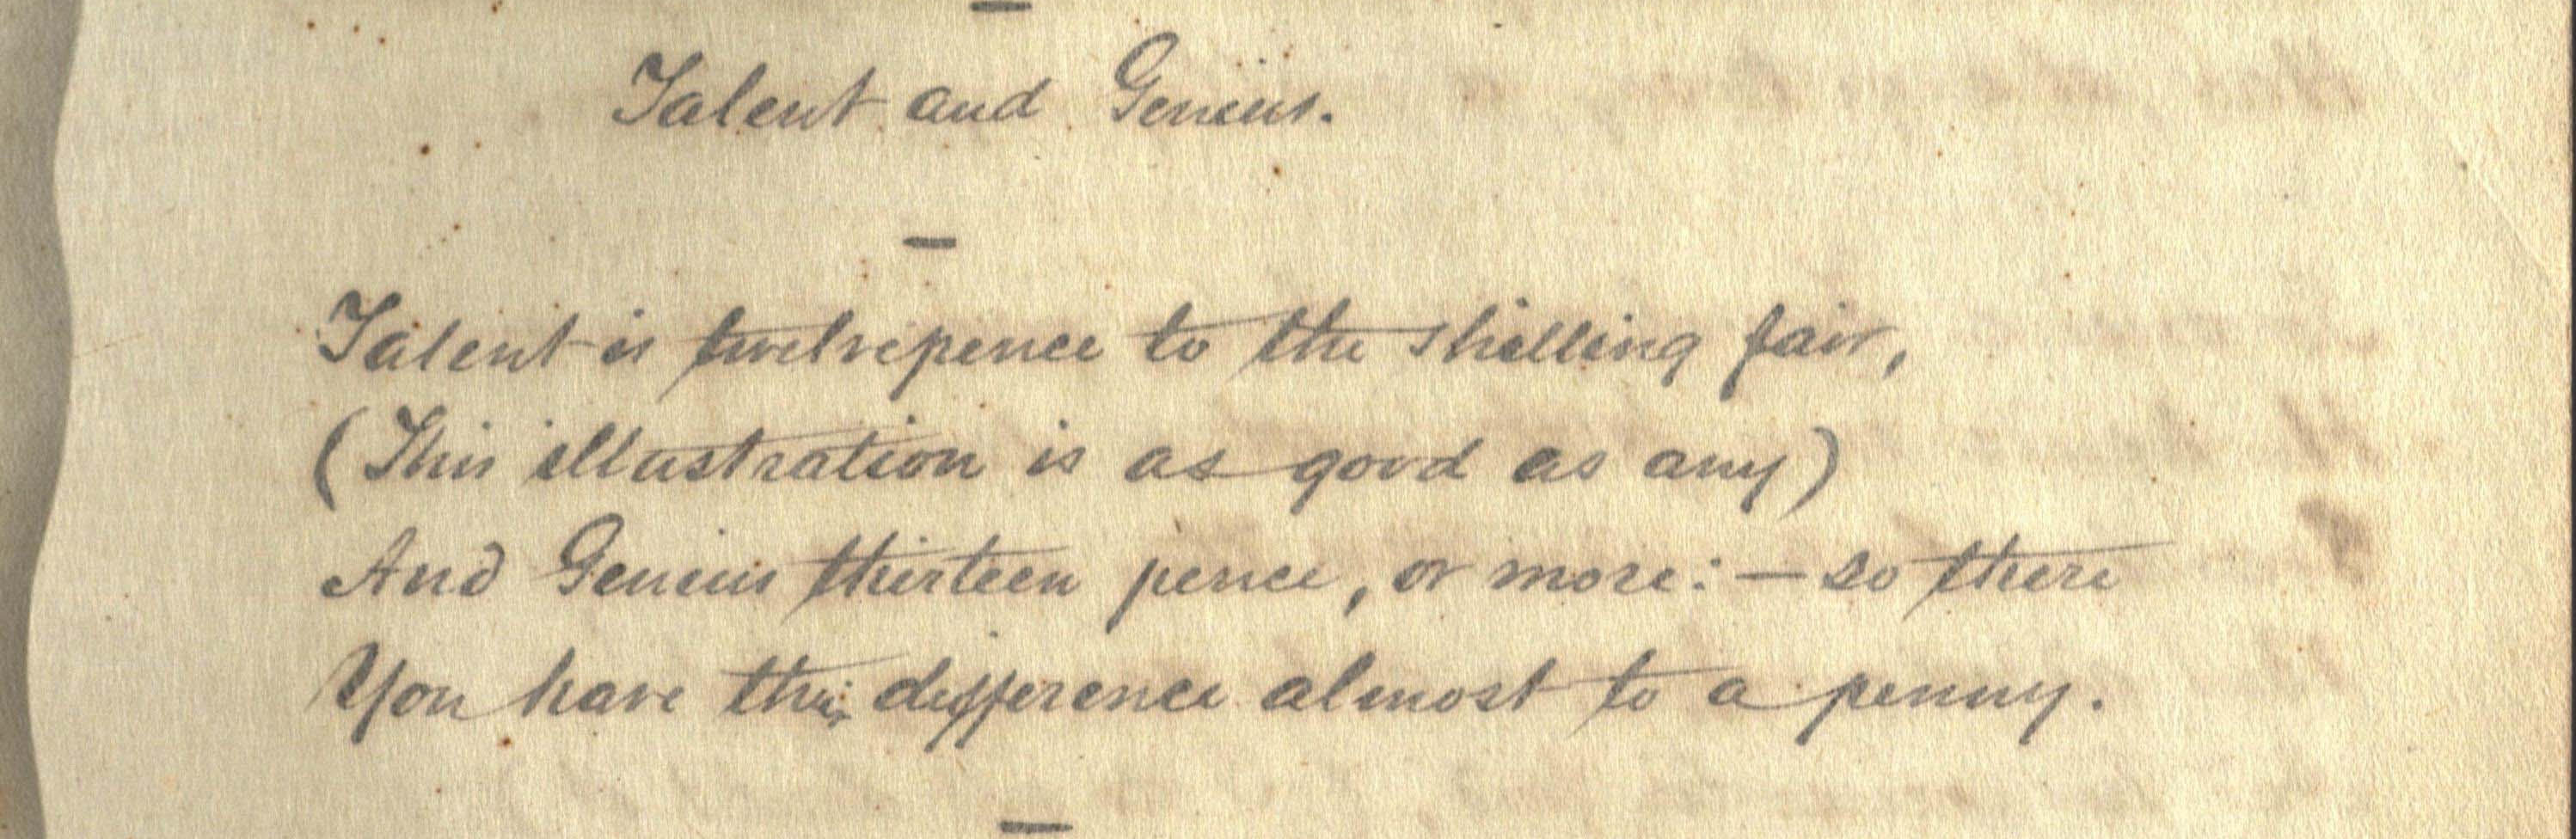 Talent and Genius.
Talent is twelvepence to the shilling fair,
(This illustration is as good as any)
And Genius thirteen pence, or more: — so there
You have this difference almost to a penny.